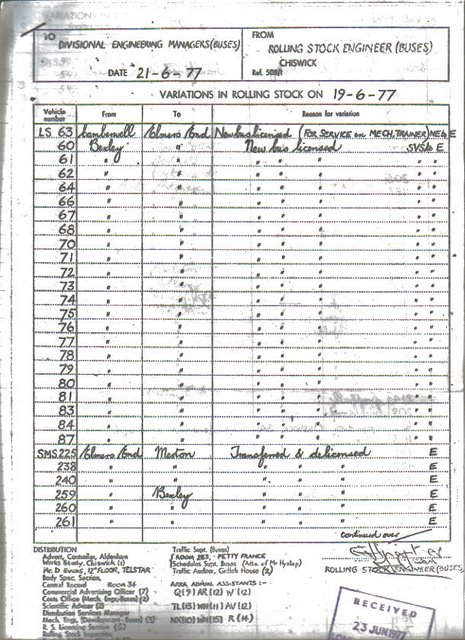 TO
DIVISIONAL ENGINEERING MANAGERS (BUSES)
DATE 21-6-77
FROM
ROLLING STOCK ENGINEER (BUSES)
CHISWICK
Ref. 508/1
VARIATIONS IN ROLLING STOCK ON 19-6-77
Vehicle number From To Reason for variation
LS 63 Camberwell Elmers End New bus licensed (FOR SERVICE on MECH. TRAINER) E
60 Bexley " New bus licensed E
61 " " " " " " "
62 " " " " " " "
64 " " " " " " "
66 " " " " " " "
67 " " " " " " "
68 " " " " " " "
70 " " " " " " "
71 " " " " " " "
72 " " " " " " "
73 " " " " " " "
74 " " " " " " "
75 " " " " " " "
76 " " " " " " "
77 " " " " " " "
78 " " " " " " "
79 " " " " " " "
80 " " " " " " "
81 " " " " " " "
83 " " " " " " "
84 " " " " " " "
87 " " " " " " "
SMS 225 Elmers End Merton Transferred & delicensed E
238 " " " " " E
240 " " " " " E
259 " Bexley " " " E
260 " " " " " E
261 " " " " " E
continued over
DISTRIBUTION
Advert. Controller, Aldenham
Works Beauty, Chiswick (1)
Mr. D. Evans, 12th FLOOR, TELSTAR
Body Spec. Section
Central Record ROOM 36
Commercial Advertising Officer (7)
Costs Office (Mech. Eng. Buses) (2)
Scientific Adviser (2)
Distribution Services Manager
Mech. Engr. (Development - Buses) (3)
R. S. Licensing Section (5)
Rolling Stock
Traffic Supt. (Buses)
ROOM 283, PETTY FRANCE
Schedules Supt. Buses (Attn. of Mr Hyslop)
Traffic Auditor, Griffith House (2)
AREA ADMIN. ASSISTANTS :-
Q(9) AR (12) W (12)
TL (15) WH (11) AV (12)
NX (10) WN (15) R (14)
ROLLING STOCK ENGINEER (BUSES)
RECEIVED
23 JUN 1977